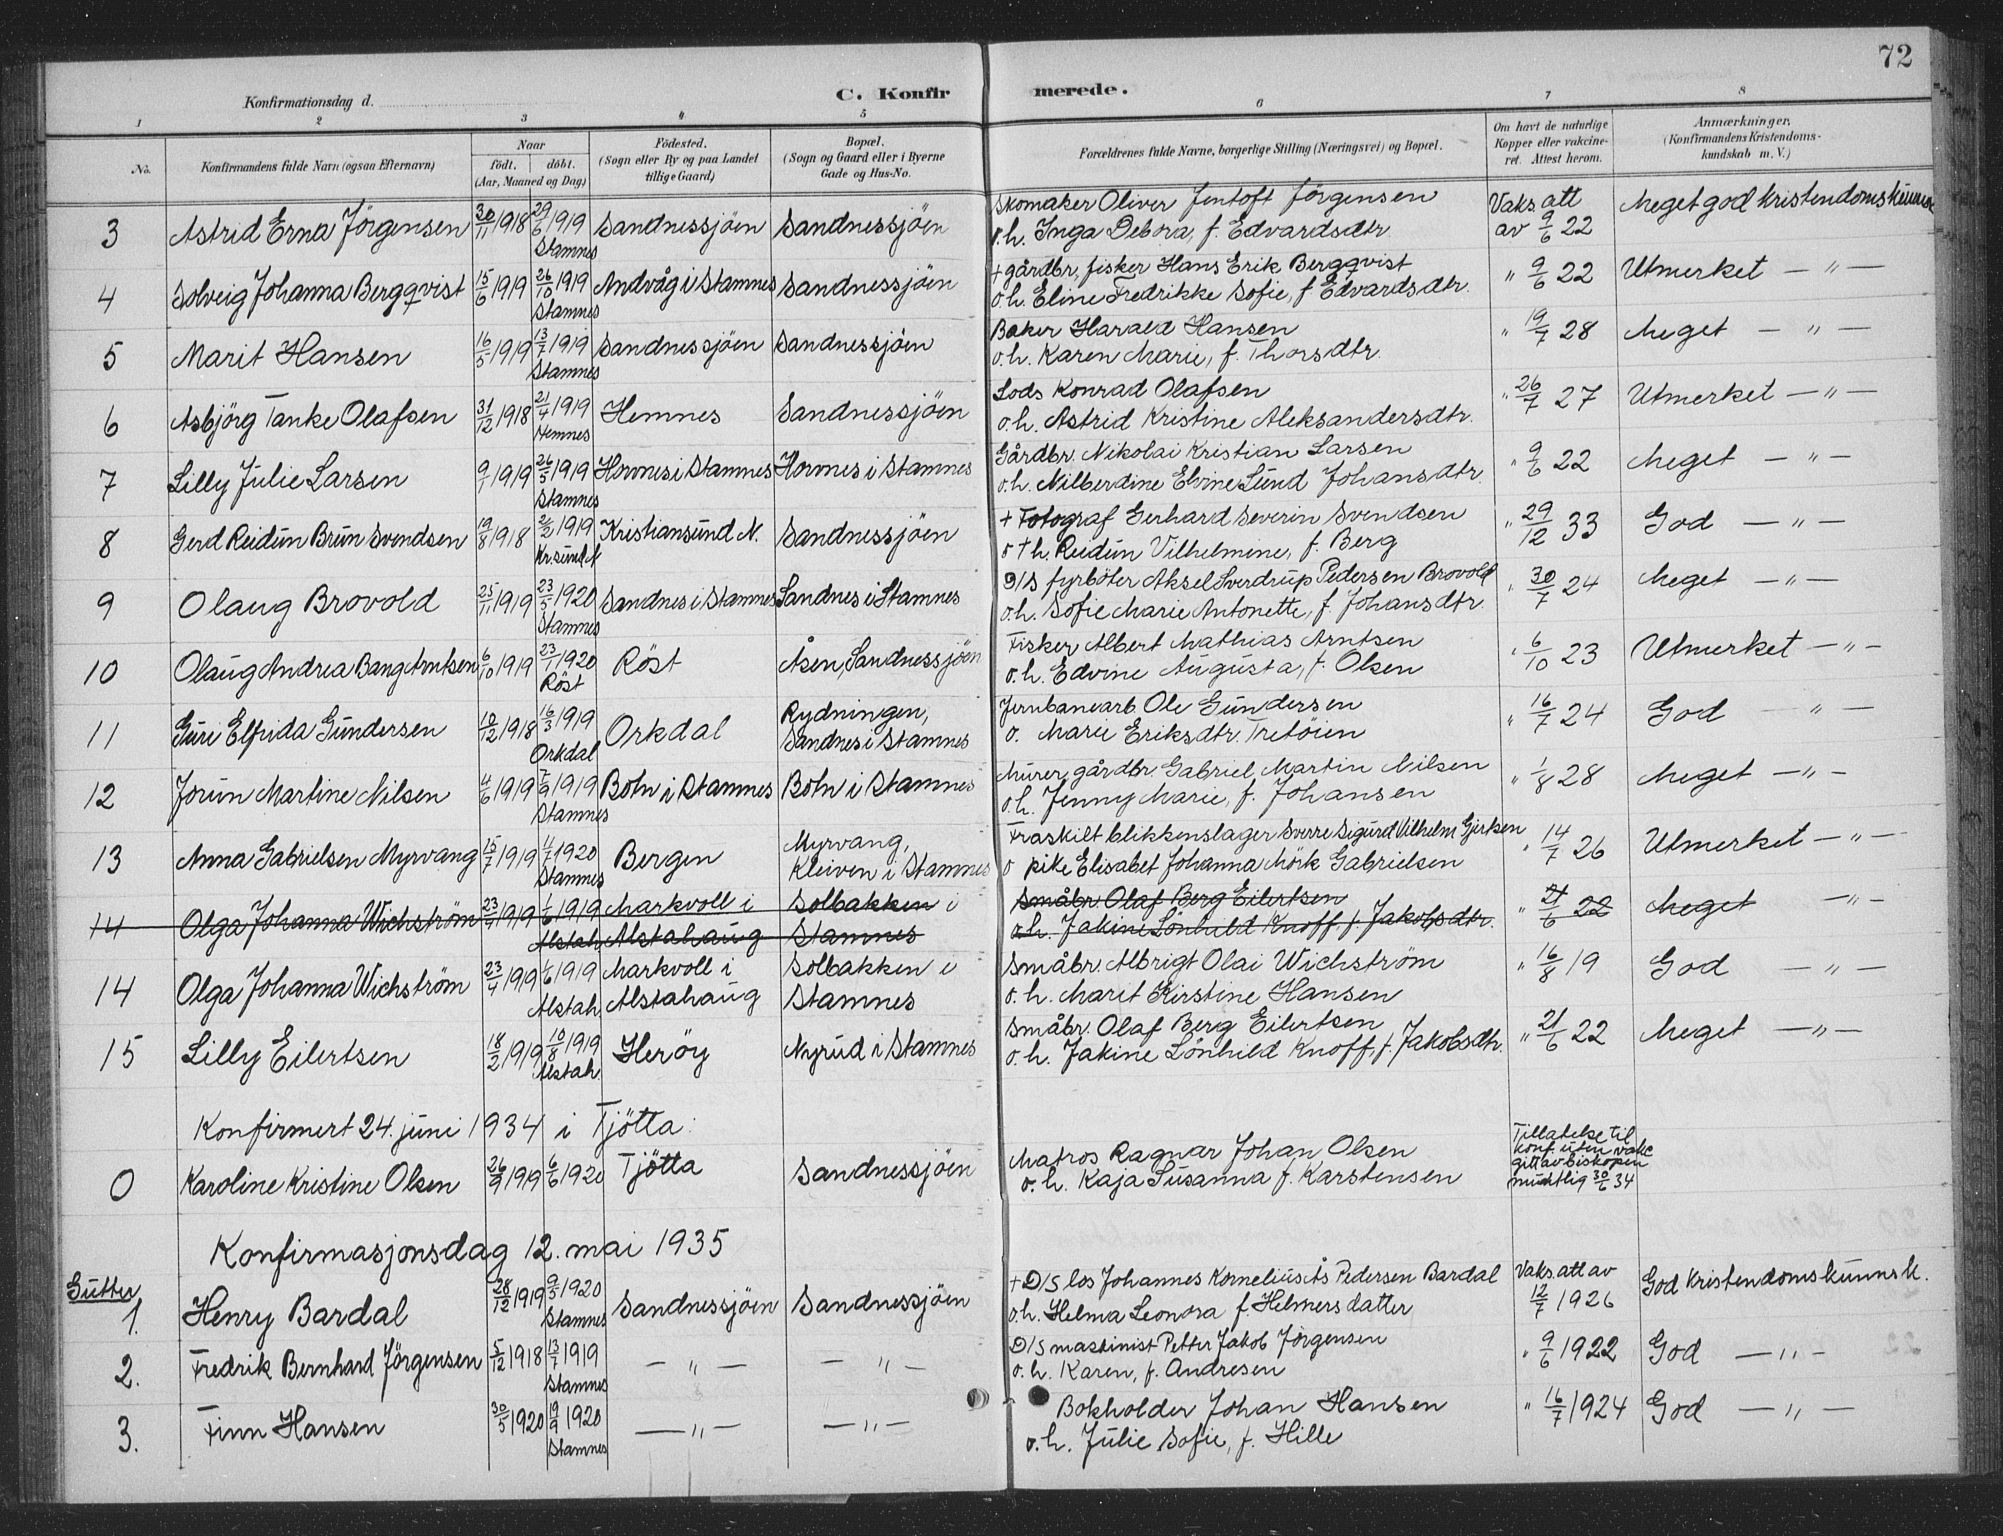 72
Konfirmationsdag d.
C. Konfirmerede.
1 2 3 4 5 6 7 8
No. Konfirmandens fulde Navn (ogsaa Efternavn) Naar födt. döbt. (Aar, Maaned og Dag) Födested. (Sogn eller By og paa Landet tillige Gaard) Bopæl. (Sogn og Gaard eller i Byerne Gade og Hus-No. Forældrenes fulde Navne, borgerlige Stilling (Næringsvei) og Bopæl. Om havt de naturlige Kopper eller vakcineret. Attest herom. Anmærkninger. (Konfirmandens Kristendomskundskab m. V.)
3 Astrid Erna Jörgensen 30/11 1918 29/6 1919 Stamnes Sandnessjöen Sandnessjöen Skomaker Oliver Jentoft Jörgensen Vaks. att av 9/6 22 Meget god kristendomskunnsk
o. h. Inga Debora, f. Edvardsdtr.
4 Solveig Johanna Bergqvist 15/6 1919 26/10 1919 Stamnes Andvåg i Stamnes Sandnessjöen + gårdbr, fisker Hans Erik Bergqvist " 9/6 22 Utmerket — " —
o. h. Eline Fredrikke Sofie, f. Edvardsdtr.
5 Marit Hansen 16/5 1919 13/7 1919 Stamnes Sandnessjöen Sandnessjöen Baker Harald Hansen " 19/7 28 Meget — " —
o. h. Karen Marie, f. Thorsdtr.
6 Asbjörg Tanke Olafsen 31/12 1918 21/4 1919 Hemnes Hemnes Sandnessjöen Lods Konrad Olafsen " 26/7 27 Utmerket — " —
o. h. Astrid Kristine Aleksandersdtr.
7 Lilly Julie Larsen 9/1 1919 26/5 1919 Stamnes Hovnes i Stamnes Hovnes i Stamnes Gårdbr. Nikolai Kristian Larsen " 9/6 22 Meget — " —
o. h. Nilberdine Elvine Lund Johansdtr.
8 Gerd Reidun Brun Svendsen 19/8 1918 2/2 1919 Kr.sund N Kristiansund N. Sandnessjöen + Fotograf Gerhard Severin Svendsen " 29/12 33 God — " —
o + h. Reidun Vilhelmine, f. Berg
9 Olaug Brovold 25/11 1919 23/5 1920 Stamnes Sandnes i Stamnes Sandnes i Stamnes D/S fyrböter Aksel Sverdrup Pedersen Brovold " 30/7 24 Meget — " —
o. h. Sofie Marie Antonette, f. Johansdtr.
10 Olaug Andrea Bang Arntsen 6/10 1919 23/1 1920 Röst Röst Åsen, Sandnessjöen Fisker Albert Mathias Arntsen " 6/10 23 Utmerket — " —
o. h. Edvine Augusta, f. Olsen
11 Guri Elfrida Gundersen 10/12 1918 16/3 1919 Orkdal Orkdal Rydningen, Sandnes i Stamnes Jernbanearb. Ole Gundersen " 16/7 24 God — " —
o. Marie Eriksdtr. Tretöien
12 Jorun Martine Nilsen 4/6 1919 7/9 1919 Stamnes Botn i Stamnes Botn i Stamnes Murer, gårdbr. Gabriel Martin Nilsen " 1/8 28 Meget — " —
o. h. Jenny Marie, f. Johansen
13 Anna Gabrielsen Myrvang 15/7 1919 11/7 1920 Stamnes Bergen Myrvang, Kleiven i Stamnes Fraskilt blikkenslager Sverre Sigurd Vilhelm Gjertsen " 14/7 26 Utmerket — " —
o pike Elisabet Johanna Mörk Gabrielsen
14 Olga Johanna Wichström 23/4 1919 1/6 1919 Alstah. Markvoll i Alstahaug Solbakken i Stamnes Småbr. Olaf Berg Eilertsen " 21/6 22 Meget — " —
o. h. Jakine Lönhild Knoff, f. Jakobsdtr.
14 Olga Johanna Wichström 23/4 1919 1/6 1919 Alstah. Markvoll i Alstahaug Solbakken i Stamnes Småbr. Albrigt Olai Wichström " 16/8 19 God — " —
o. h. Marit Kirstine Hansen
15 Lilly Eilertsen 18/2 1919 10/8 1919 Alstah. Heröy Myrud i Stamnes Småbr. Olaf Berg Eilertsen " 21/6 22 Meget — " —
o. h. Jakine Lönhild Knoff, f. Jakobsdtr.
Konfirmert 24. juni 1934 i Tjötta:
0 Karoline Kristine Olsen 26/9 1919 6/6 1920 Tjötta Sandnessjöen Matros Ragnar Johan Olsen Tillatelse til konf. uten vaks gitt av biskopen muntlig 30/6 34
o. h. Kaja Susanna f. Karstensen
Konfirmasjonsdag 12. mai 1935
Gutter
1. Henry Bardal 28/12 1919 9/5 1920 Stamnes Sandnessjöen Sandnessjöen + D/S los Johannes Kornelius Ås Pedersen Bardal Vaks. att av 12/7 1926 God kristendomskunnsk.
o. h. Helma Leonora f. Helmersdatter
2. Fredrik Bernhard Jörgensen 5/12 1918 13/7 1919 Stamnes — " — — " — D/S maskinist Petter Jakob Jörgensen " 9/6 1922 God — " —
o. h. Karen, f. Andresen
3. Finn Hansen 30/5 1920 19/9 1920 Stamnes — " — — " — Bokholder Johan Hansen " 16/7 1924 God — " —
o. h. Julie Sofie, f. Hille